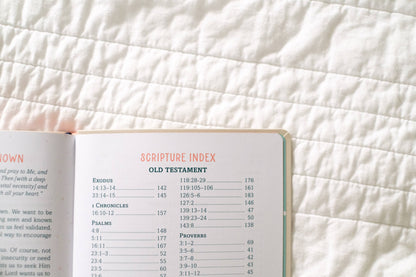 NOWN
and pray to Me, and
Then [with a deep
vital necessity] and
h all your heart."
own. We want to be
eing seen and known.
om us feel validated.
r way to encourage
s. Of course, not
insecurity or need
us to seek Him
e Lord wants us to
SCRIPTURE INDEX
OLD TESTAMENT
EXODUS
14:13–14 142
33:14–15 245
1 CHRONICLES
16:10–12 157
PSALMS
4:8 148
5:11 177
16:11 167
23:1–3 52
23:4 55
23:5 60
119:28–29 176
119:105–106 161
126:5–6 183
127:2 146
139:13–14 47
139:23–24 50
143:8 138
PROVERBS
3:1–2 69
3:5–6 41
3:7–8 42
3:9–10 43
3:11–12 45